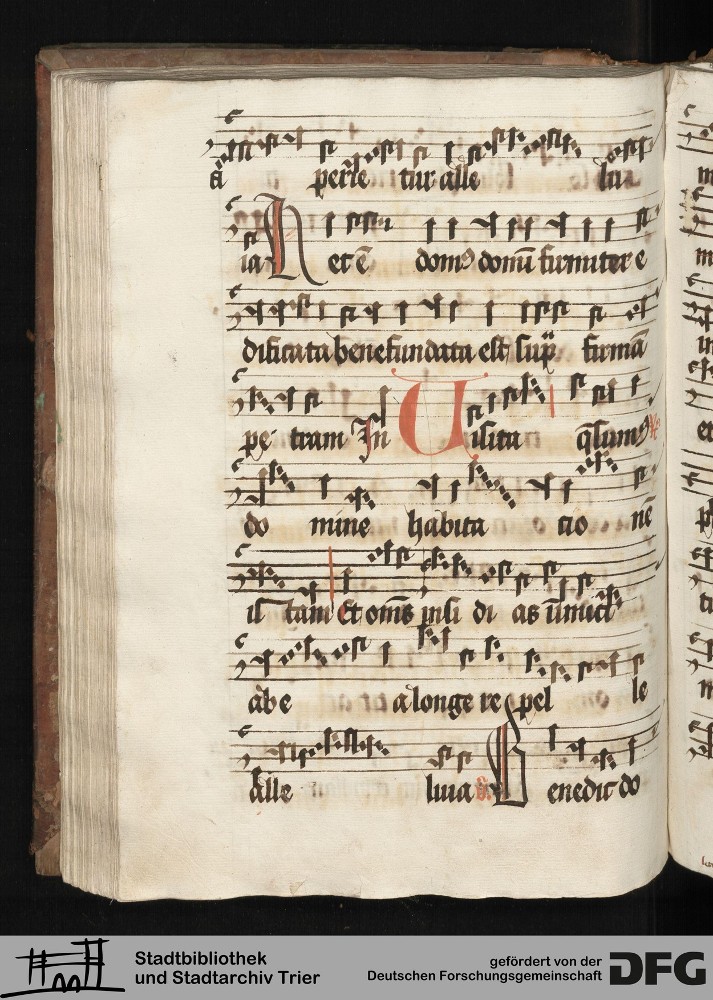 ei perietur alle lu
ia Hec ē domꝰ domī firmiter e
dificata bene fundata est supͣ firmā
petram In Uisita q̄sumꝰ
domine habitacionē
istam Et om̄s insidias inimici
ab e a longe repel le
Alle luia Benedic do
Stadtbibliothek
und Stadtarchiv Trier
gefördert von der
Deutschen Forschungsgemeinschaft
DFG